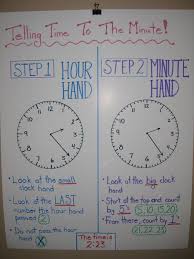 Telling Time To The Minute!
STEP 1 HOUR HAND
STEP 2 MINUTE HAND
• Look at the small
clock hand
• Look at the LAST
number the hour hand
passed (2)
• Do not pass the hour
hand X
• Look at the big clock
hand
• Start at the top and count
by 5's (5,10,15,20)
• From there, count by 1's
(21,22,23)
The time is
2:23